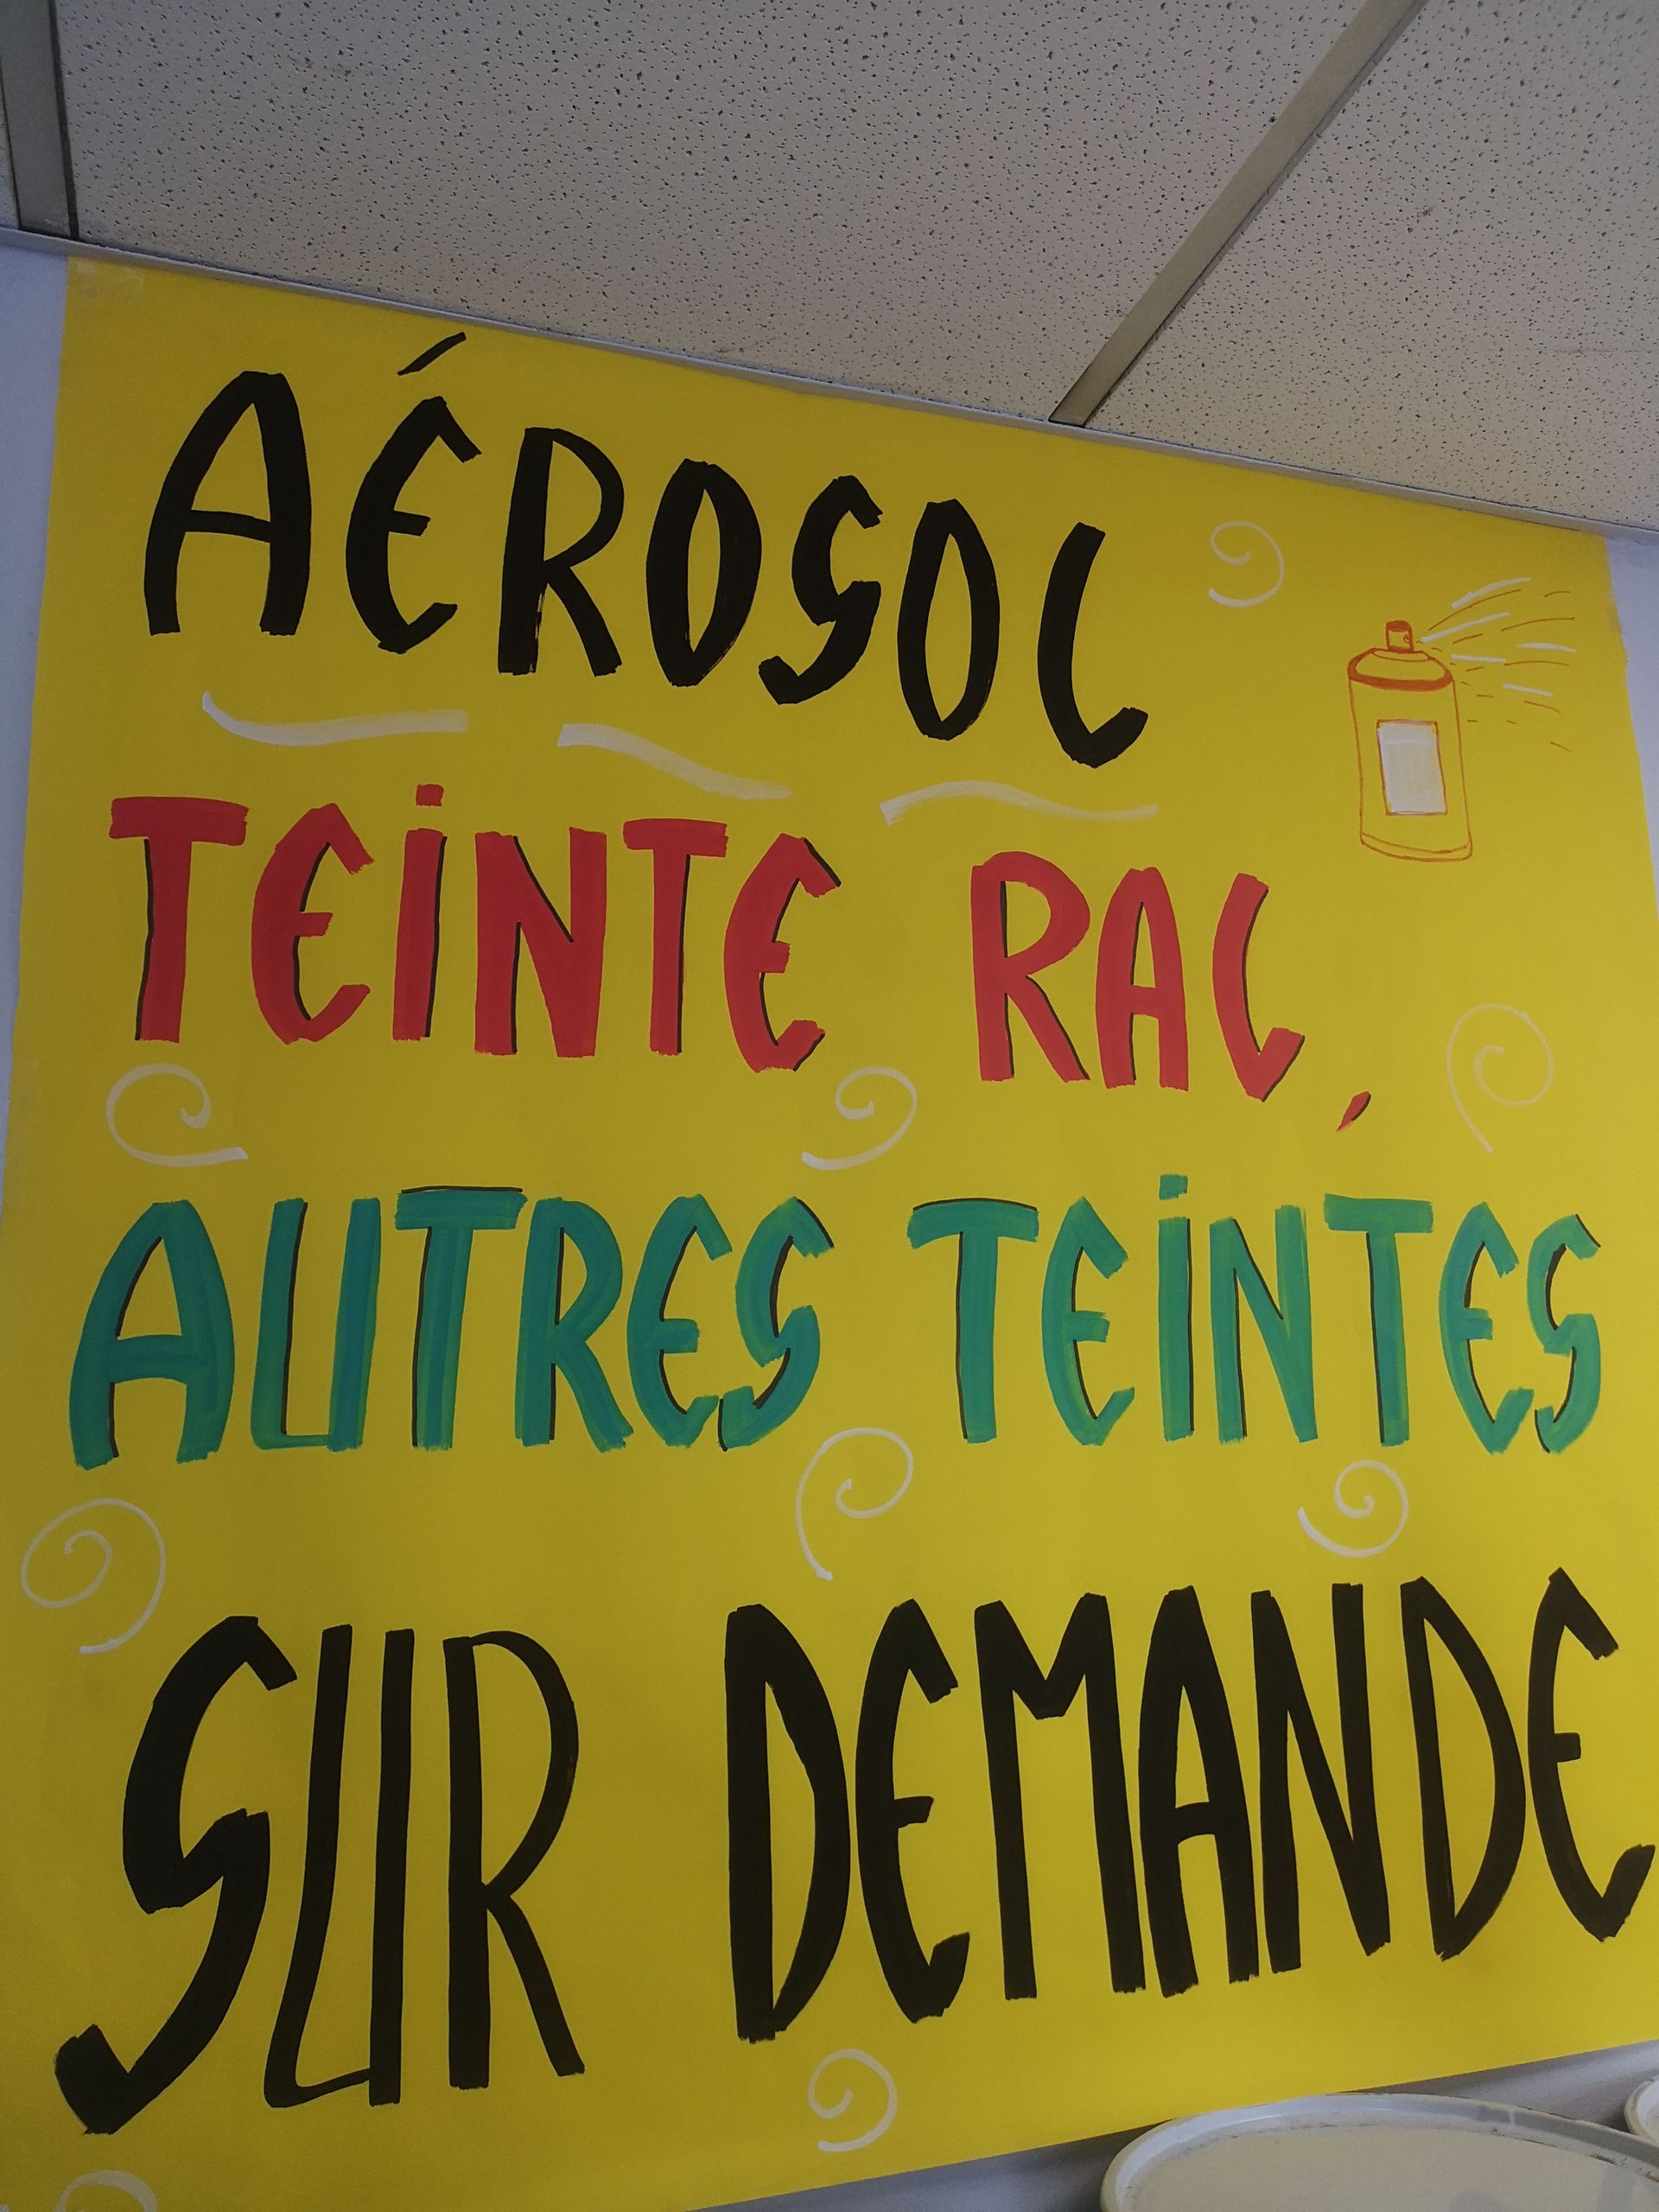 AÉROSOL
TEINTE RAL,
AUTRES TEINTES
SUR DEMANDE